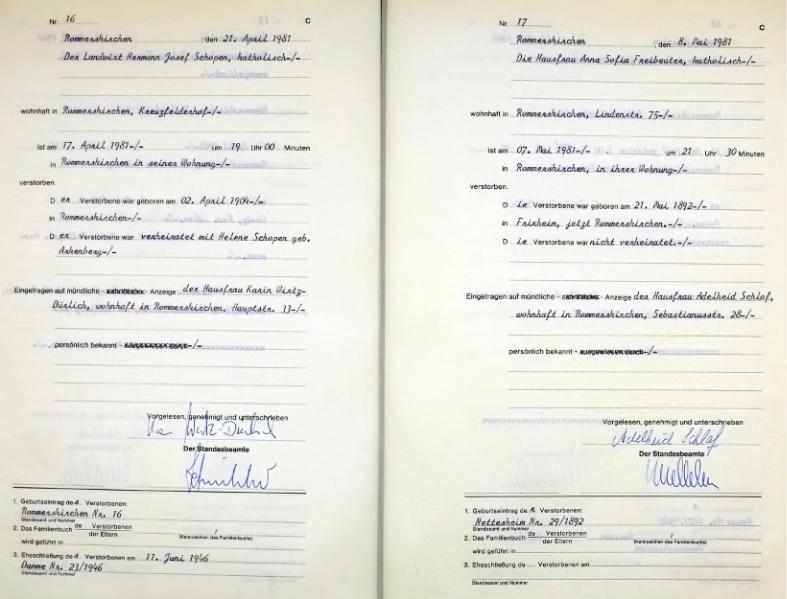 Nr. 16 C
Rommerskirchen den 21. April 1981
Der Landwirt Hermann Josef Schopen, katholisch-/-
wohnhaft in Rommerskirchen, Kreuzfelderhof-/-
ist am 17. April 1981-/- um 19 Uhr 00 Minuten
in Rommerskirchen in seiner Wohnung-/-
verstorben.
D er Verstorbene war geboren am 02. April 1904-/-
in Rommerskirchen-/-
D er Verstorbene war verheiratet mit Helene Schopen geb.
Ankenberg-/-
Eingetragen auf mündliche - schriftliche - Anzeige der Hausfrau Karin Wirtz-
Dürlich, wohnhaft in Rommerskirchen, Hauptstr. 33-/-
persönlich bekannt - -/-
Vorgelesen, genehmigt und unterschrieben
Der Standesbeamte
1. Geburtseintrag de r Verstorbenen:
Rommerskirchen Nr. 16
Standesamt und Nummer
2. Das Familienbuch de Verstorbenen
der Eltern (Kennzeichen des Familienbuchs)
wird geführt in
3. Eheschließung de r Verstorbenen am 11. Juni 1946
Damme Nr. 23/1946
Standesamt und Nummer
Nr. 17 C
Rommerskirchen , den 8. Mai 1981
Die Hausfrau Anna Sofia Freibeuter, katholisch-/-
wohnhaft in Rommerskirchen, Lindenstr. 75-/-
ist am 07. Mai 1981-/- um 21 Uhr 30 Minuten
in Rommerskirchen, in ihrer Wohnung-/-
verstorben.
D ie Verstorbene war geboren am 21. Mai 1892-/-
in Frixheim, jetzt Rommerskirchen.-/-
D ie Verstorbene war nicht verheiratet.-/-
Eingetragen auf mündliche - schriftliche - Anzeige der Hausfrau Adelheid Schlaf,
wohnhaft in Rommerskirchen, Sebastianusstr. 28-/-
persönlich bekannt - ausgewiesen durch -/-
Vorgelesen, genehmigt und unterschrieben
Adelheid Schlaf
Der Standesbeamte
1. Geburtseintrag de r Verstorbenen:
Nettesheim Nr. 29/1892
Standesamt und Nummer
2. Das Familienbuch de Verstorbenen
der Eltern (Kennzeichen des Familienbuchs)
wird geführt in
3. Eheschließung de Verstorbenen am
Standesamt und Nummer